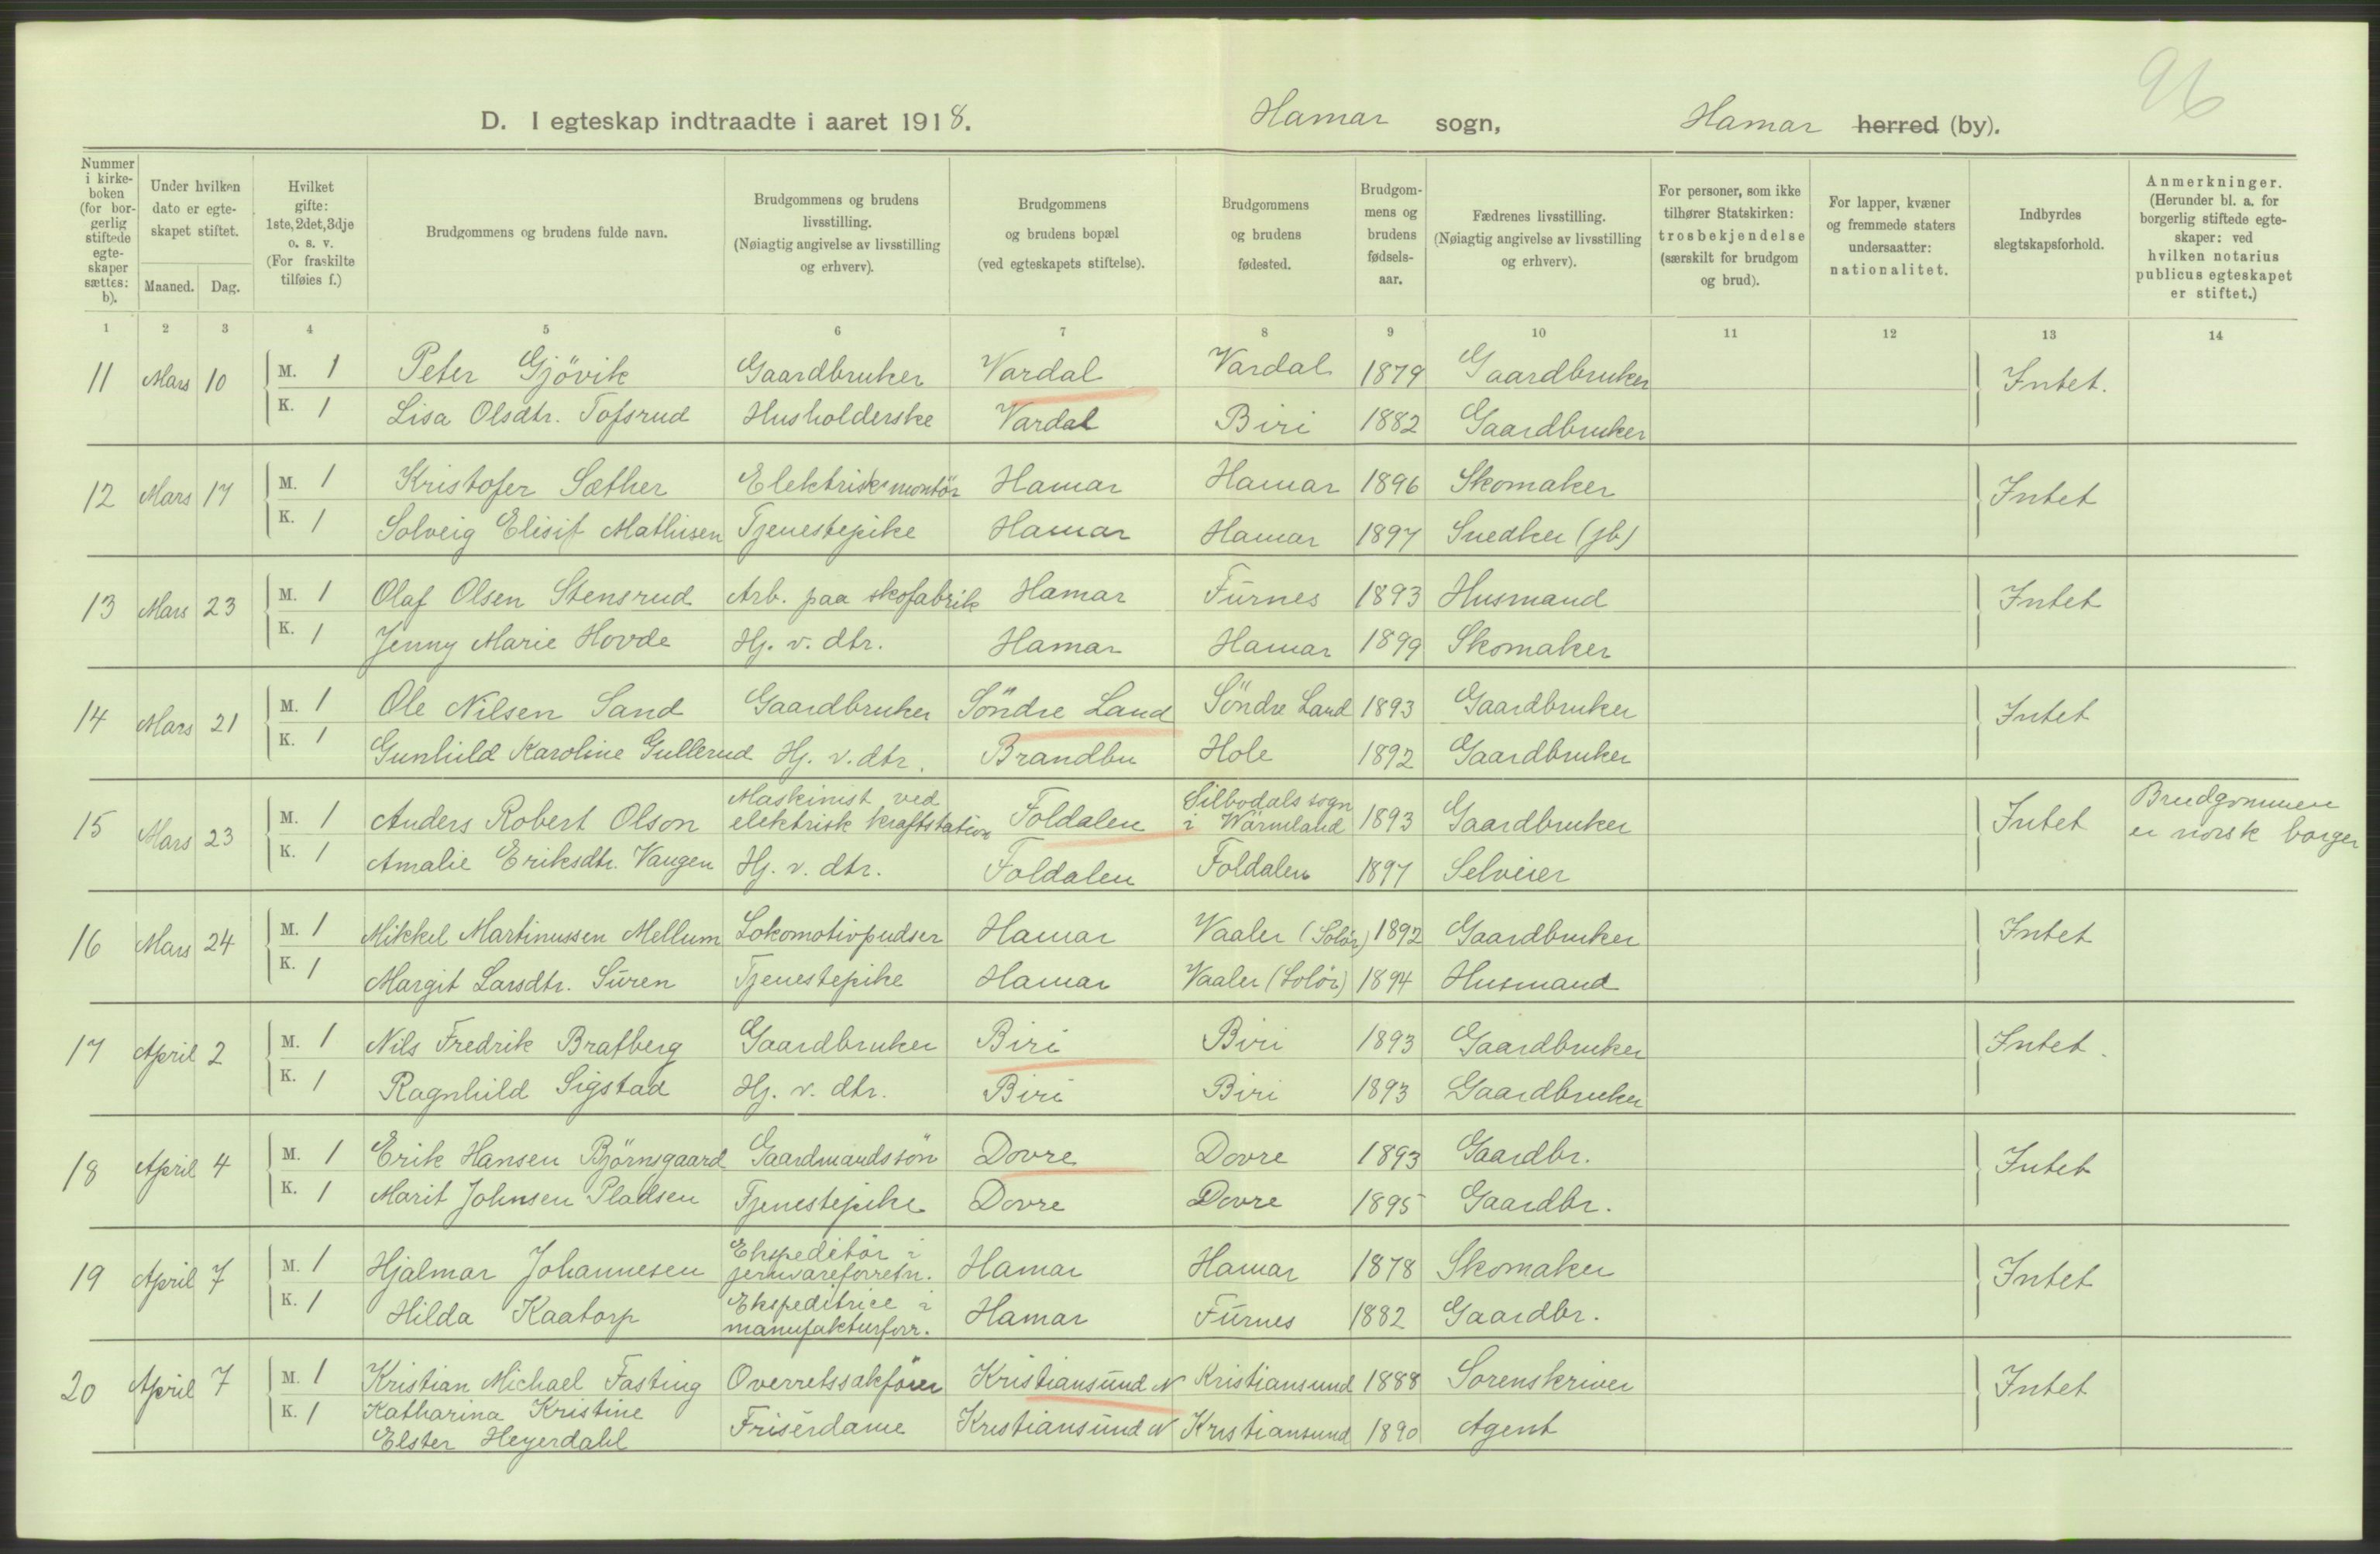 96
D. I egteskap indtraadte i aaret 1918. Hamar sogn, Hamar herred (by).
Nummer i kirke-boken (for bor-gerlig stiftede egte-skaper sættes: b).
Under hvilken dato er egte-skapet stiftet.
Maaned. Dag.
Hvilket gifte: 1ste, 2det, 3dje o. s. v. (For fraskilte tilføies f.)
Brudgommens og brudens fulde navn.
Brudgommens og brudens livsstilling. (Nøiagtig angivelse av livsstilling og erhverv).
Brudgommens og brudens bopæl (ved egteskapets stiftelse).
Brudgommens og brudens fødested.
Brudgom-mens og brudens fødsels-aar.
Fædrenes livsstilling. (Nøiagtig angivelse av livsstilling og erhverv).
For personer, som ikke tilhører Statskirken: trosbekjendelse (særskilt for brudgom og brud).
For lapper, kvæner og fremmede staters undersaatter: nationalitet.
Indbyrdes slegtskapsforhold.
Anmerkninger. (Herunder bl. a. for borgerlig stiftede egte-skaper: ved hvilken notarius publicus egteskapet er stiftet.)
1 2 3 4 5 6 7 8 9 10 11 12 13 14
11 Mars 10 M. 1 Peter Gjövik Gaardbruker Vardal Vardal 1879 Gaardbruker Intet.
K. 1 Lisa Olsdtr. Tofsrud Husholderske Vardal Biri 1882 Gaardbruker
12 Mars 17 M. 1 Kristofer Sæther Elektriskmontör Hamar Hamar 1896 Skomaker Intet
K. 1 Solveig Elisif Mathisen Tjenestepike Hamar Hamar 1897 Snedker (jb)
13 Mars 23 M. 1 Olaf Olsen Stensrud Arb. paa skofabrik Hamar Furnes 1893 Husmand Intet
K. 1 Jenny Marie Hovde Hj. v. dtr. Hamar Hamar 1899 Skomaker
14 Mars 21 M. 1 Ole Nilsen Sand Gaardbruker Söndre Land Söndre Land 1893 Gaardbruker Intet
K. 1 Gunhild Karoline Gullerud Hj. v. dtr. Brandbu Hole 1892 Gaardbruker
15 Mars 23 M. 1 Anders Robert Olson Maskinist ved elektrisk kraftstation Foldalen Silbodals sogn i Wärmland 1893 Gaardbruker Intet Brudgommen er norsk borger
K. 1 Amalie Eriksdtr. Vangen Hj. v. dtr. Foldalen Foldalen 1897 Selveier
16 Mars 24 M. 1 Mikkel Martinussen Mellum Lokomotivpudser Hamar Vaaler (Solör) 1892 Gaardbruker Intet
K. 1 Margit Larsdtr. Suren Tjenestepike Hamar Vaaler (Solör) 1894 Husmand
17 April 2 M. 1 Nils Fredrik Bratberg Gaardbruker Biri Biri 1893 Gaardbruker Intet.
K. 1 Ragnhild Sigstad Hj. v. dtr. Biri Biri 1893 Gaardbruker
18 April 4 M. 1 Erik Hansen Björnsgaard Gaardmandssön Dovre Dovre 1893 Gaardbr. Intet
K. 1 Marit Johnsen Pladsen Tjenestepike Dovre Dovre 1895 Gaardbr.
19 April 7 M. 1 Hjalmar Johannesen Ekspeditör i jernvareforretn. Hamar Hamar 1878 Skomaker Intet
K. 1 Hilda Kaatorp Ekspeditrice i manufakturforr. Hamar Furnes 1882 Gaardbr.
20 April 7 M. 1 Kristian Michael Fasting Overretssakförer Kristiansund N Kristiansund 1888 Sorenskriver Intet
K. 1 Katharina Kristine Elster Heyerdahl Frisérdame Kristiansund N Kristiansund 1890 Agent